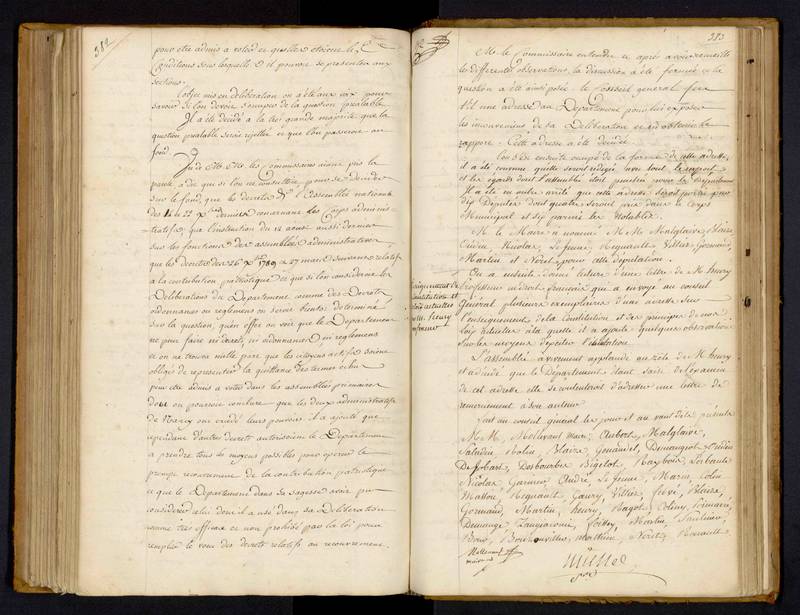 382
pour etre admis a voter et quelles etoient les
Conditions sous lesquelles il pouvoit se presenter aux
sections.
L'objet mis en deliberation on a été aux voix pour
savoir si l'on devoit s'occuper de la question prealable
Il a été decidé a la tres grande majorité que la
question prealable seroit rejettée et que l'on passeroit au
fond.
M. les Commissaires aiant pris la
parole a dit que si l'on ne consultoit pour se decider
sur le fond, que les decrets de l'Assemblée nationale
des 14 et 22 Xbre derniers concernant les Corps adminis
tratifs, que l'instruction du 12 aoust aussi dernier
sur les fonctions des assemblées administratives
que les decrets des 26 Xbre 1789 et 27 mars suivant relatifs
a la contribution patriotique et que si l'on consideroit les
Deliberations du Departement comme des Decrets
ordonnances ou reglemens on seroit bientot determiné
sur la question, qu'en effet on voit que le Departement
ne peut faire ni decrets, ni ordonnances ni reglemens
et on ne trouve nulle part que les citoyens actifs soient
obligés de representer la quittance des termes echus
pour etre admis a voter dans les assemblées primaires
d'ou on pourroit conclure que les deux administratifs
de Nancy ont excedé leurs pouvoirs. il a ajouté que
cependant d'autres decrets autorisoient le Departement
a prendre tous les moyens possibles pour operer le
prompt recouvrement de la contribution patriotique
et que le Departement dans sa sagesse avoit pu
considerer celui dont il a usé dans sa Deliberation
comme tres efficace et non prohibé par la loi pour
remplir le vœu des decrets relatifs au recouvrement.
383
M. le Commissaire entendu et après avoir recueilli
les differentes observations, la discussion a été fermée et la
question a été ainsi posée: le Conseil general fera
t'il une adresse au Departement pour lui exposer
les inconveniens de sa Deliberation et en obtenir le
rapport. Cette adresse a été decidée
L'on s'est ensuite occupé de la forme de cette adresse,
il a été convenu qu'elle seroit redigée avec tout le respect
et les egards dont l'assemblée étoit penetrée pour le Departement
Il a été en outre arrêté que cette adresse seroit portée par
dix Deputés dont quatre seroient pris dans le Corps
Municipal et six parmi les Notables.
M. le Maire a nommé M. M. Malglaive, Blaise,
Oudin, Nicolas, Le Jeune, Regneault, Villiez, Germain,
Martin et Noirel, pour cette députation.
Enseignement de
Constitution et
lois actuelles
par M. henry
professeur
On a ensuite donné lecture d'une lettre de M. henry
Professeur en droit françois qui a envoyé au conseil
General plusieurs exemplaires d'une adresse sur
l'enseignement de la Constitution et des principes de nos
loix actuelles à laquelle il a ajouté quelques observations
sur les moyens d'exciter l'emulation.
L'assemblée a vivement applaudi au zèle de M. henry
et a décidé que le Département étant saisi de l'examen
de cet adresse elle se contenteroit d'adresser une lettre de
remerciement à son auteur
Fait au conseil general les jour et an avant dits présents
M. M. Mollevaut maire, Aubert, Malglaive,
Saladin, Rolin, Blaise, Genaudet, Demangeot, Oudin
De fobart, Desbourbes, Bigelot, Raybois,
Nicolas, Garnier, André, Le Jeune, Marin, Colin
Mathieu, Regnault, Gaury, Villiez, febvé, Plaire,
Germain, Martin, henry, Ragot, Coliny, Poincaré,
Demange, Foissey, Martin, Saulnier,
Bouchonvillier, matthieu, Noirel, Renault
Mollevaut
maire